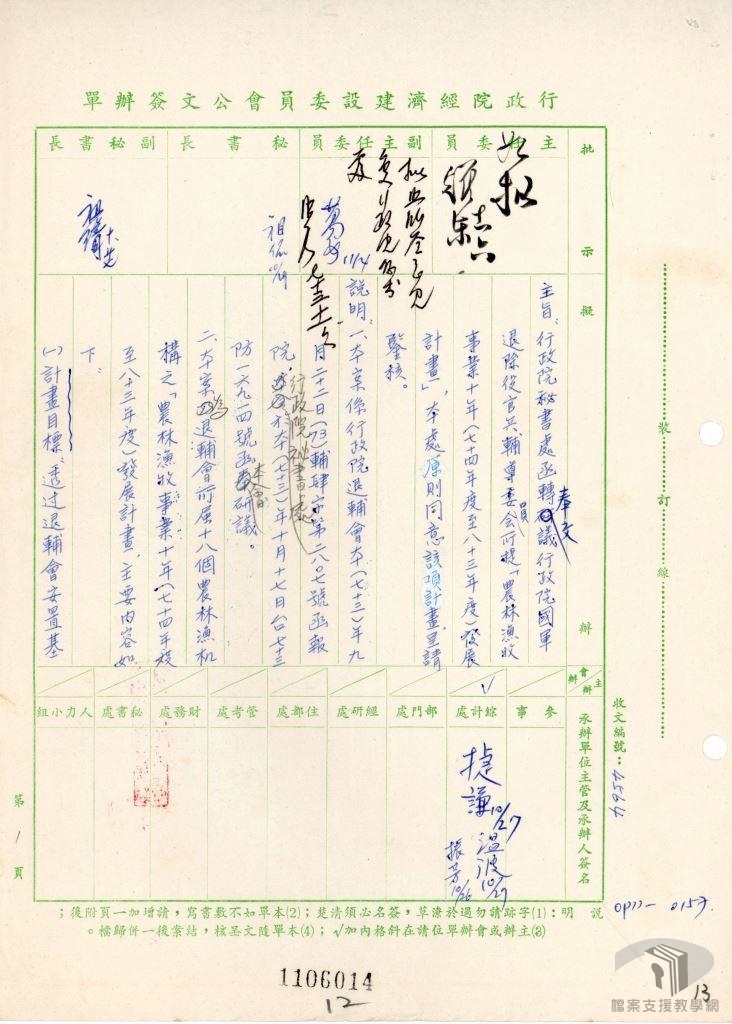 行政院經濟建設委員會公文簽辦單
批示
主任委員
副主任委員
秘書長
副秘書長
如擬
擬辦
主旨：行政院秘書處函轉奉交議行政院國軍
退除役官兵輔導委員會所提「農林漁牧
事業十年(七十四年度至八十三年度)發展
計畫」，本處原則同意該項計畫，呈請
鑒核。
說明：一、本案係行政院退輔會本(七十三)年九
月二十二日(73)輔肆字第二八〇七號函報
院，行政院秘書處於本(七十三)年十月十七日台七十三
防一六九一四號函本會研議。
二、本案為退輔會所屬十八個農林漁牧機
構之「農林漁牧事業十年(七十四年度
至八十三年度)發展計畫，主要內容如
下：
(一)計畫目標：透過退輔會安置基
主辦
會辦
參事
綜計處
√
部門處
經研處
住都處
管考處
財務處
秘書處
人力小組
承辦單位主管及承辦人簽名
捷謙 10/27
溫波 10/27
振芳 10/26
裝訂線
收文編號：
第1頁
說明：(1)字跡請勿過於潦草，簽名必須清楚；(2)本單如不敷書寫，請增加一頁附後；
(3)主辦或會辦單位請在斜格內加√；(4)本單隨文呈核，結案後一併歸檔。
1106014
12
13
檔案支援教學網